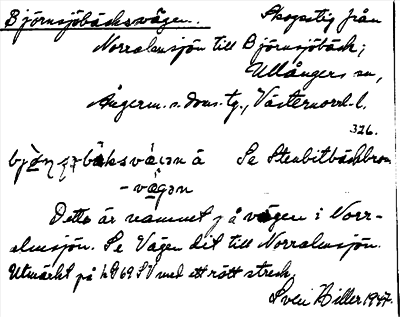 Björnsjöbäcksvägen. Skogsstig från
Norralmsjön till Björnsjöbäck;
Ullångers sn,
Ångerm. s. doms. tg., Västernorrl. l.
326.
Se Stenbitbäcksbron
Detta är namnet på vägen i Norr-
almsjön. Se Vägen dit till Norralmsjön.
Utmärkt på h G 69 SV med ett rött streck.
Sven Hiller 1947.